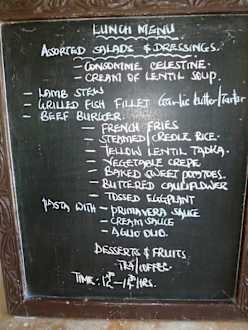 LUNCH MENU
ASSORTED SALADS & DRESSINGS.
- CONSOMME CELESTINE.
- CREAM OF LENTIL SOUP.
- LAMB STEW
- GRILLED FISH FILLET Garlic butter/tartar
- BEEF BURGER.
- FRENCH FRIES
- STEAMED/CREOLE RICE.
- YELLOW LENTIL TADKA.
- VEGETABLE CREPE
- BAKED SWEET POTATOES.
- BUTTERED CAULIFLOWER
- TOSSED EGGPLANT
PASTA WITH - PRIMAVERA SAUCE
- CREAM SAUCE
- AGLIO OLIO.
DESSERTS & FRUITS
TEA/COFFEE.
TIME: